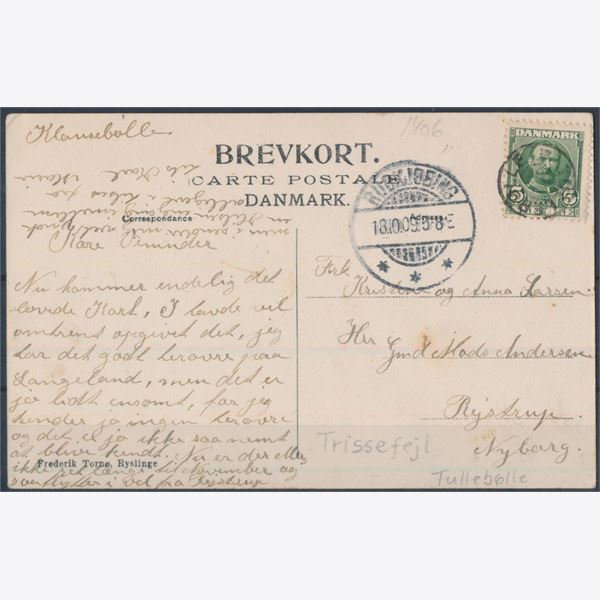 Klausebølle
1406
BREVKORT.
CARTE POSTALE
DANMARK.
Correspondance
Adresse
RUDKJØBING
18.10.09.5-8E
DANMARK
5 5
Kære Veninder
Nu kommer endelig det
lovede Kort, I havde vel
omtrent opgivet det, jeg
har det godt herovre paa
Langeland, men det er
jo lidt ensomt, for jeg
kender jo ingen herovre
og det er jo ikke saa nemt
at blive kendt. Nu er der ellers
ikke ret længe til November og
saa flytter I vel fra Rejstrup
Frk
Kristine og Anna Larsen
Hr Gmd Mads Andersen
Rejstrup
Nyborg.
Trissefejl
Tullebølle
Frederik Tornø, Ryslinge